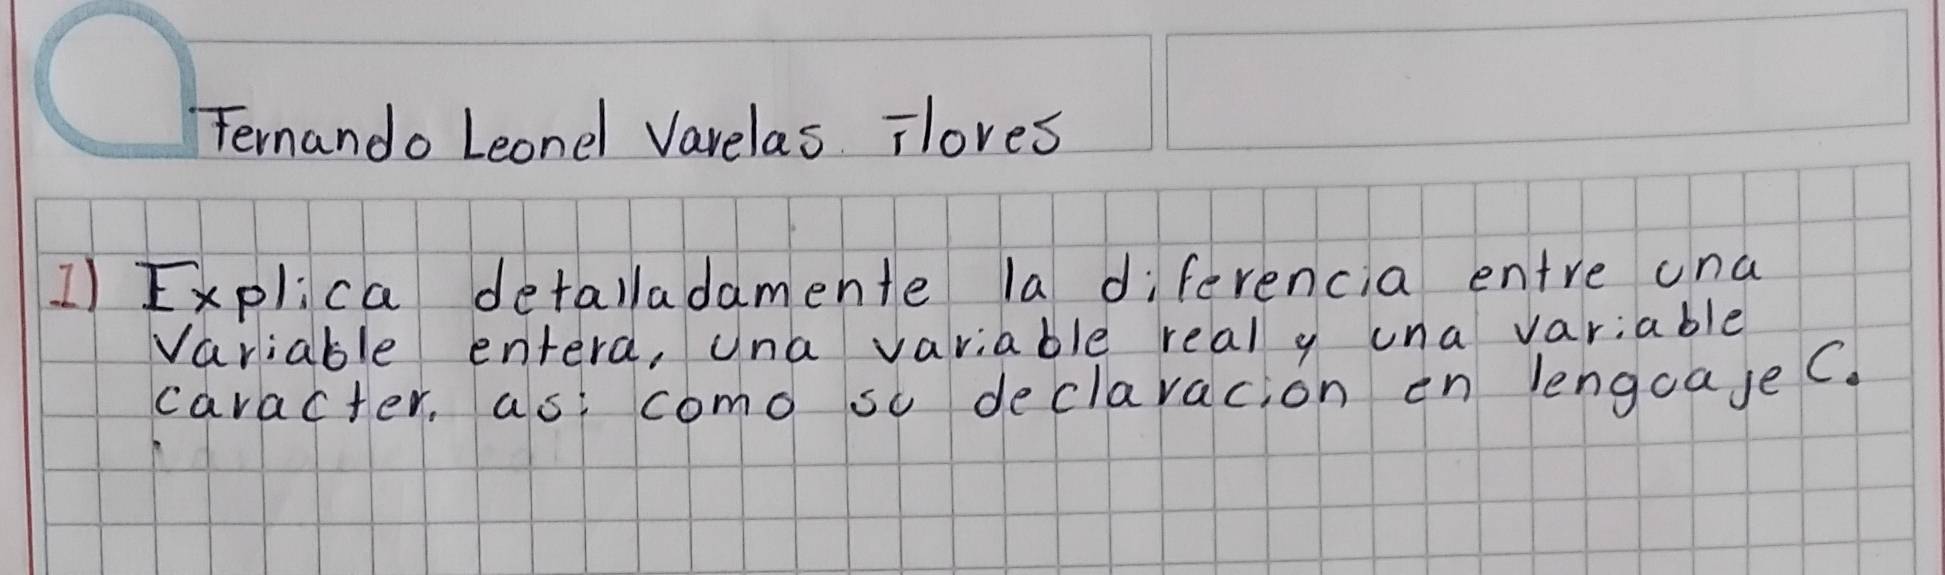 Fernando Leonel Varelas Flores
1) Explica detalladamente la diferencia entre una
variable entera, una variable real y una variable
caracter, asi como su declaracion en lenguaje C.